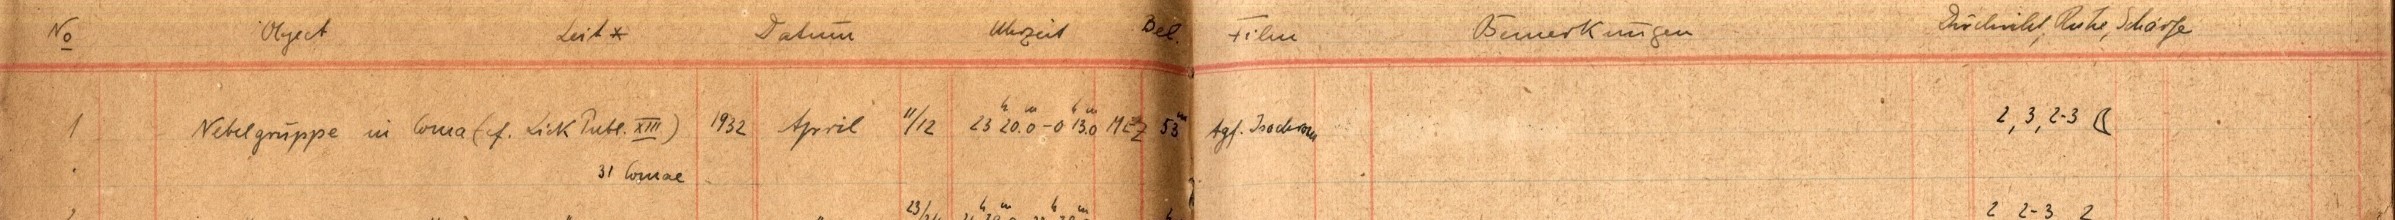 No Object Leit * Datum Uhrzeit Bel. Film Bemerkungen Durchsicht, Ruhe, Schärfe
1 Nebelgruppe in Coma (cf. Lick Publ. XIII) 1932 April 11/12 23h 20.m0 - 0h 13.m0 MEZ 53m Agf. Isochrom 2, 3, 2-3 ☾
31 Comae
23/24 2 2-3 2